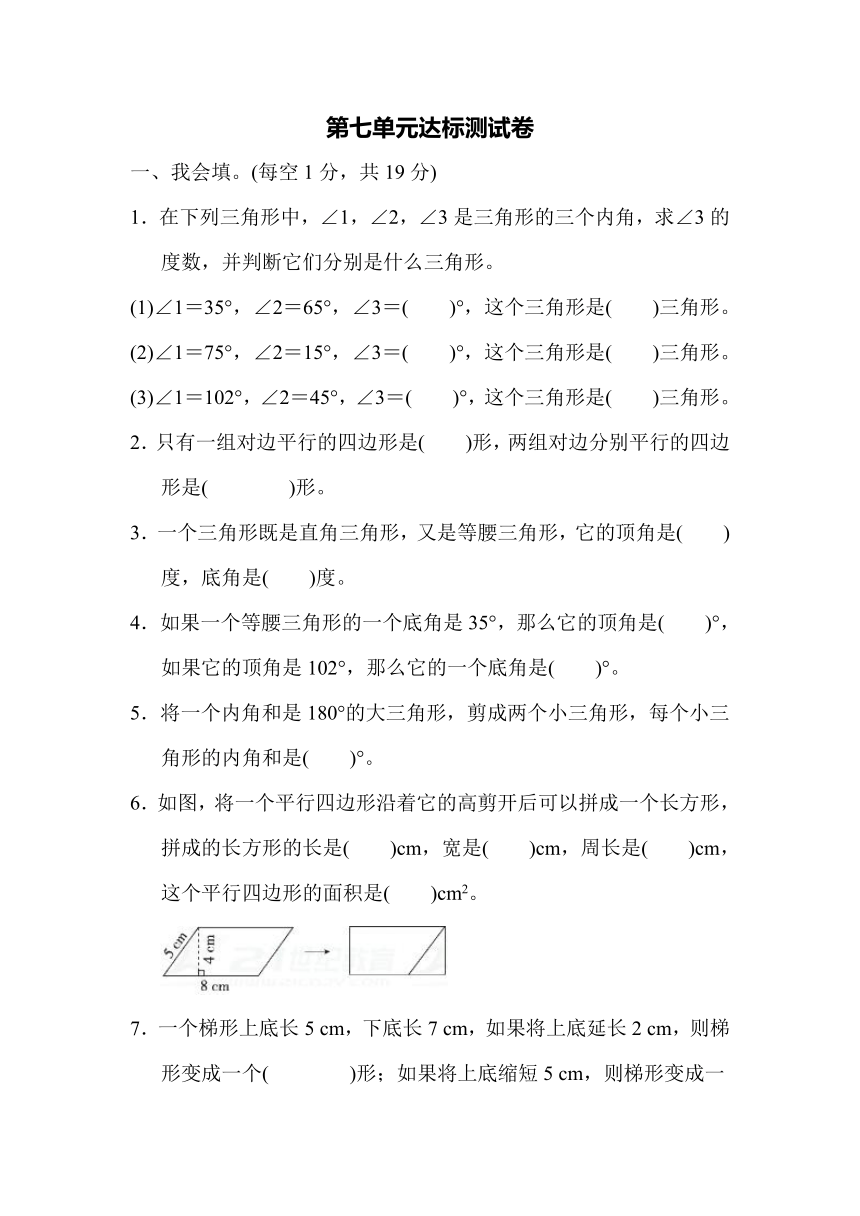 第七单元达标测试卷
一、我会填。(每空1分，共19分)
1．在下列三角形中，∠1，∠2，∠3是三角形的三个内角，求∠3的
度数，并判断它们分别是什么三角形。
(1)∠1＝35°，∠2＝65°，∠3＝(　　)°，这个三角形是(　　)三角形。
(2)∠1＝75°，∠2＝15°，∠3＝(　　)°，这个三角形是(　　)三角形。
(3)∠1＝102°，∠2＝45°，∠3＝(　　)°，这个三角形是(　　)三角形。
2．只有一组对边平行的四边形是(　　)形，两组对边分别平行的四边
形是(　　　　)形。
3．一个三角形既是直角三角形，又是等腰三角形，它的顶角是(　　)
度，底角是(　　)度。
4．如果一个等腰三角形的一个底角是35°，那么它的顶角是(　　)°，
如果它的顶角是102°，那么它的一个底角是(　　)°。
5．将一个内角和是180°的大三角形，剪成两个小三角形，每个小三
角形的内角和是(　　)°。
6．如图，将一个平行四边形沿着它的高剪开后可以拼成一个长方形，
拼成的长方形的长是(　　)cm，宽是(　　)cm，周长是(　　)cm，
这个平行四边形的面积是(　　)cm²。
5 cm
4 cm
8 cm
7．一个梯形上底长5 cm，下底长7 cm，如果将上底延长2 cm，则梯
形变成一个(　　　　)形；如果将上底缩短5 cm，则梯形变成一